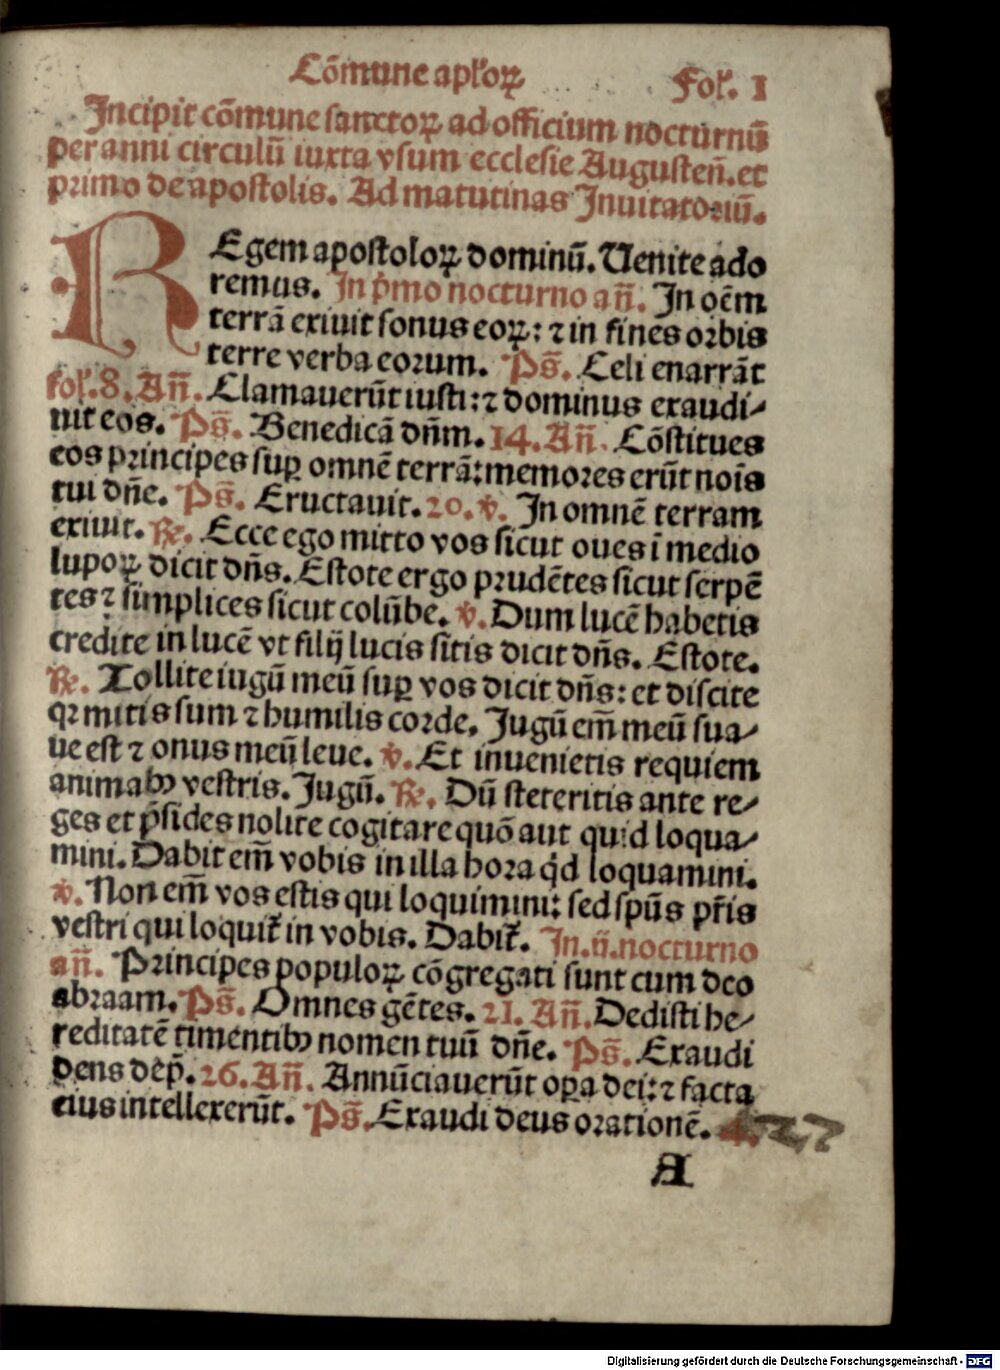 Cõmune aplꝛoꝝ
Fol. 1
Incipit cõmune sanctoꝝ ad officium nocturnũ
per anni circulũ iuxta vsum ecclesie Augusten̄. et
primo de apostolis. Ad matutinas Inuitatoꝛiũ.
REgem apostoloꝝ dominũ. Uenite ado
remus. In p̄mo nocturno añ. In oẽm
terrã exiuit sonus eoꝝ: ⁊ in fines oꝛbis
terre verba eoꝛum. Ps̄. Celi enarrãt
fol. 8. Añ. Clamauerũt iusti: ⁊ dominus exaudi⸗
uit eos. Ps̄. Benedicã dñm. 14. Añ. Cõstitues
eos principes suꝑ omnẽ terrã: memoꝛes erũt noĩs
tui dñe. Ps̄. Eructauit. 20. ℣. In omnẽ terram
exiuit. ℟. Ecce ego mitto vos sicut oues ĩ medio
lupoꝝ dicit dñs. Estote ergo pꝛudẽtes sicut serpẽ
tes ⁊ simplices sicut colũbe. ℣. Dum lucẽ habetis
credite in lucẽ vt filij lucis sitis dicit dñs. Estote.
℟. Tollite iugũ meũ suꝑ vos dicit dñs: et discite
qꝛ mitis sum ⁊ humilis coꝛde. Jugũ em̄ meũ sua⸗
ue est ⁊ onus meũ leue. ℣. Et inuenietis requiem
animabꝰ vestris. Jugũ. ℟. Dũ steteritis ante re⸗
ges et p̄sides nolite cogitare quõ aut quid loqua⸗
mini. Dabit em̄ vobis in illa hoꝛa qd̄ loquamini.
℣. Non em̄ vos estis qui loquimini: sed spũs pr̄is
vestri qui loquit᷑ in vobis. Dabit᷑. In .ij. nocturno
añ. Pꝛincipes populoꝝ cõgregati sunt cum deo
abꝛaam. Ps̄. Omnes gẽtes. 21. Añ. Dedisti he⸗
reditatẽ timentibꝰ nomen tuũ dñe. Ps̄. Exaudi
deus dep̄. 26. Añ. Annũciauerũt oꝑa dei: ⁊ facta
eius intellexerũt. Ps̄. Exaudi deus oꝛationẽ.
A
Digitalisierung gefördert durch die Deutsche Forschungsgemeinschaft - DFG